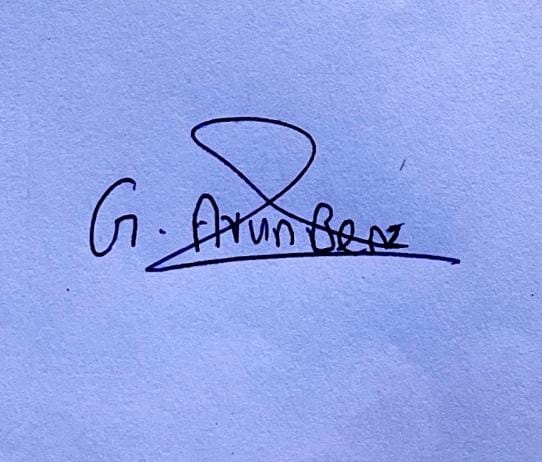 G. Arun Benz